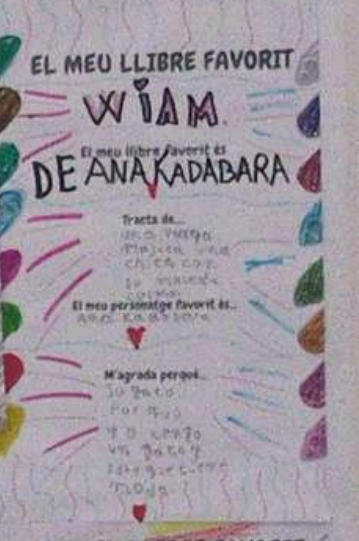 EL MEU LLIBRE FAVORIT
WiAM.
El meu llibre favorit és
DE ANA KADABARA
Tracta de...
una
magica una
chica con
su
El meu personatge favorit és...
ana Kadabara
M'agrada perquè...
su gato
por que
yo tengo
un gato y